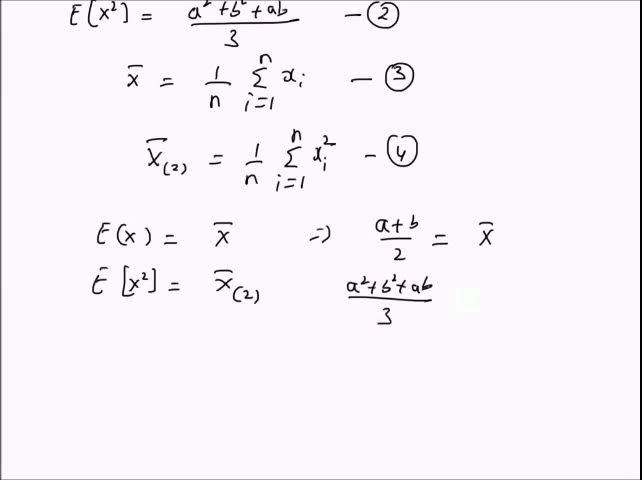 E[x²] = a²+b²+ab / 3 — ②
x̄ = 1/n Σ_{i=1}^{n} x_i — ③
X̄_(2) = 1/n Σ_{i=1}^{n} x_i² — ④
E(x) = x̄ ⇒ a+b / 2 = x̄
E[x²] = x̄_(2) a²+b²+ab / 3